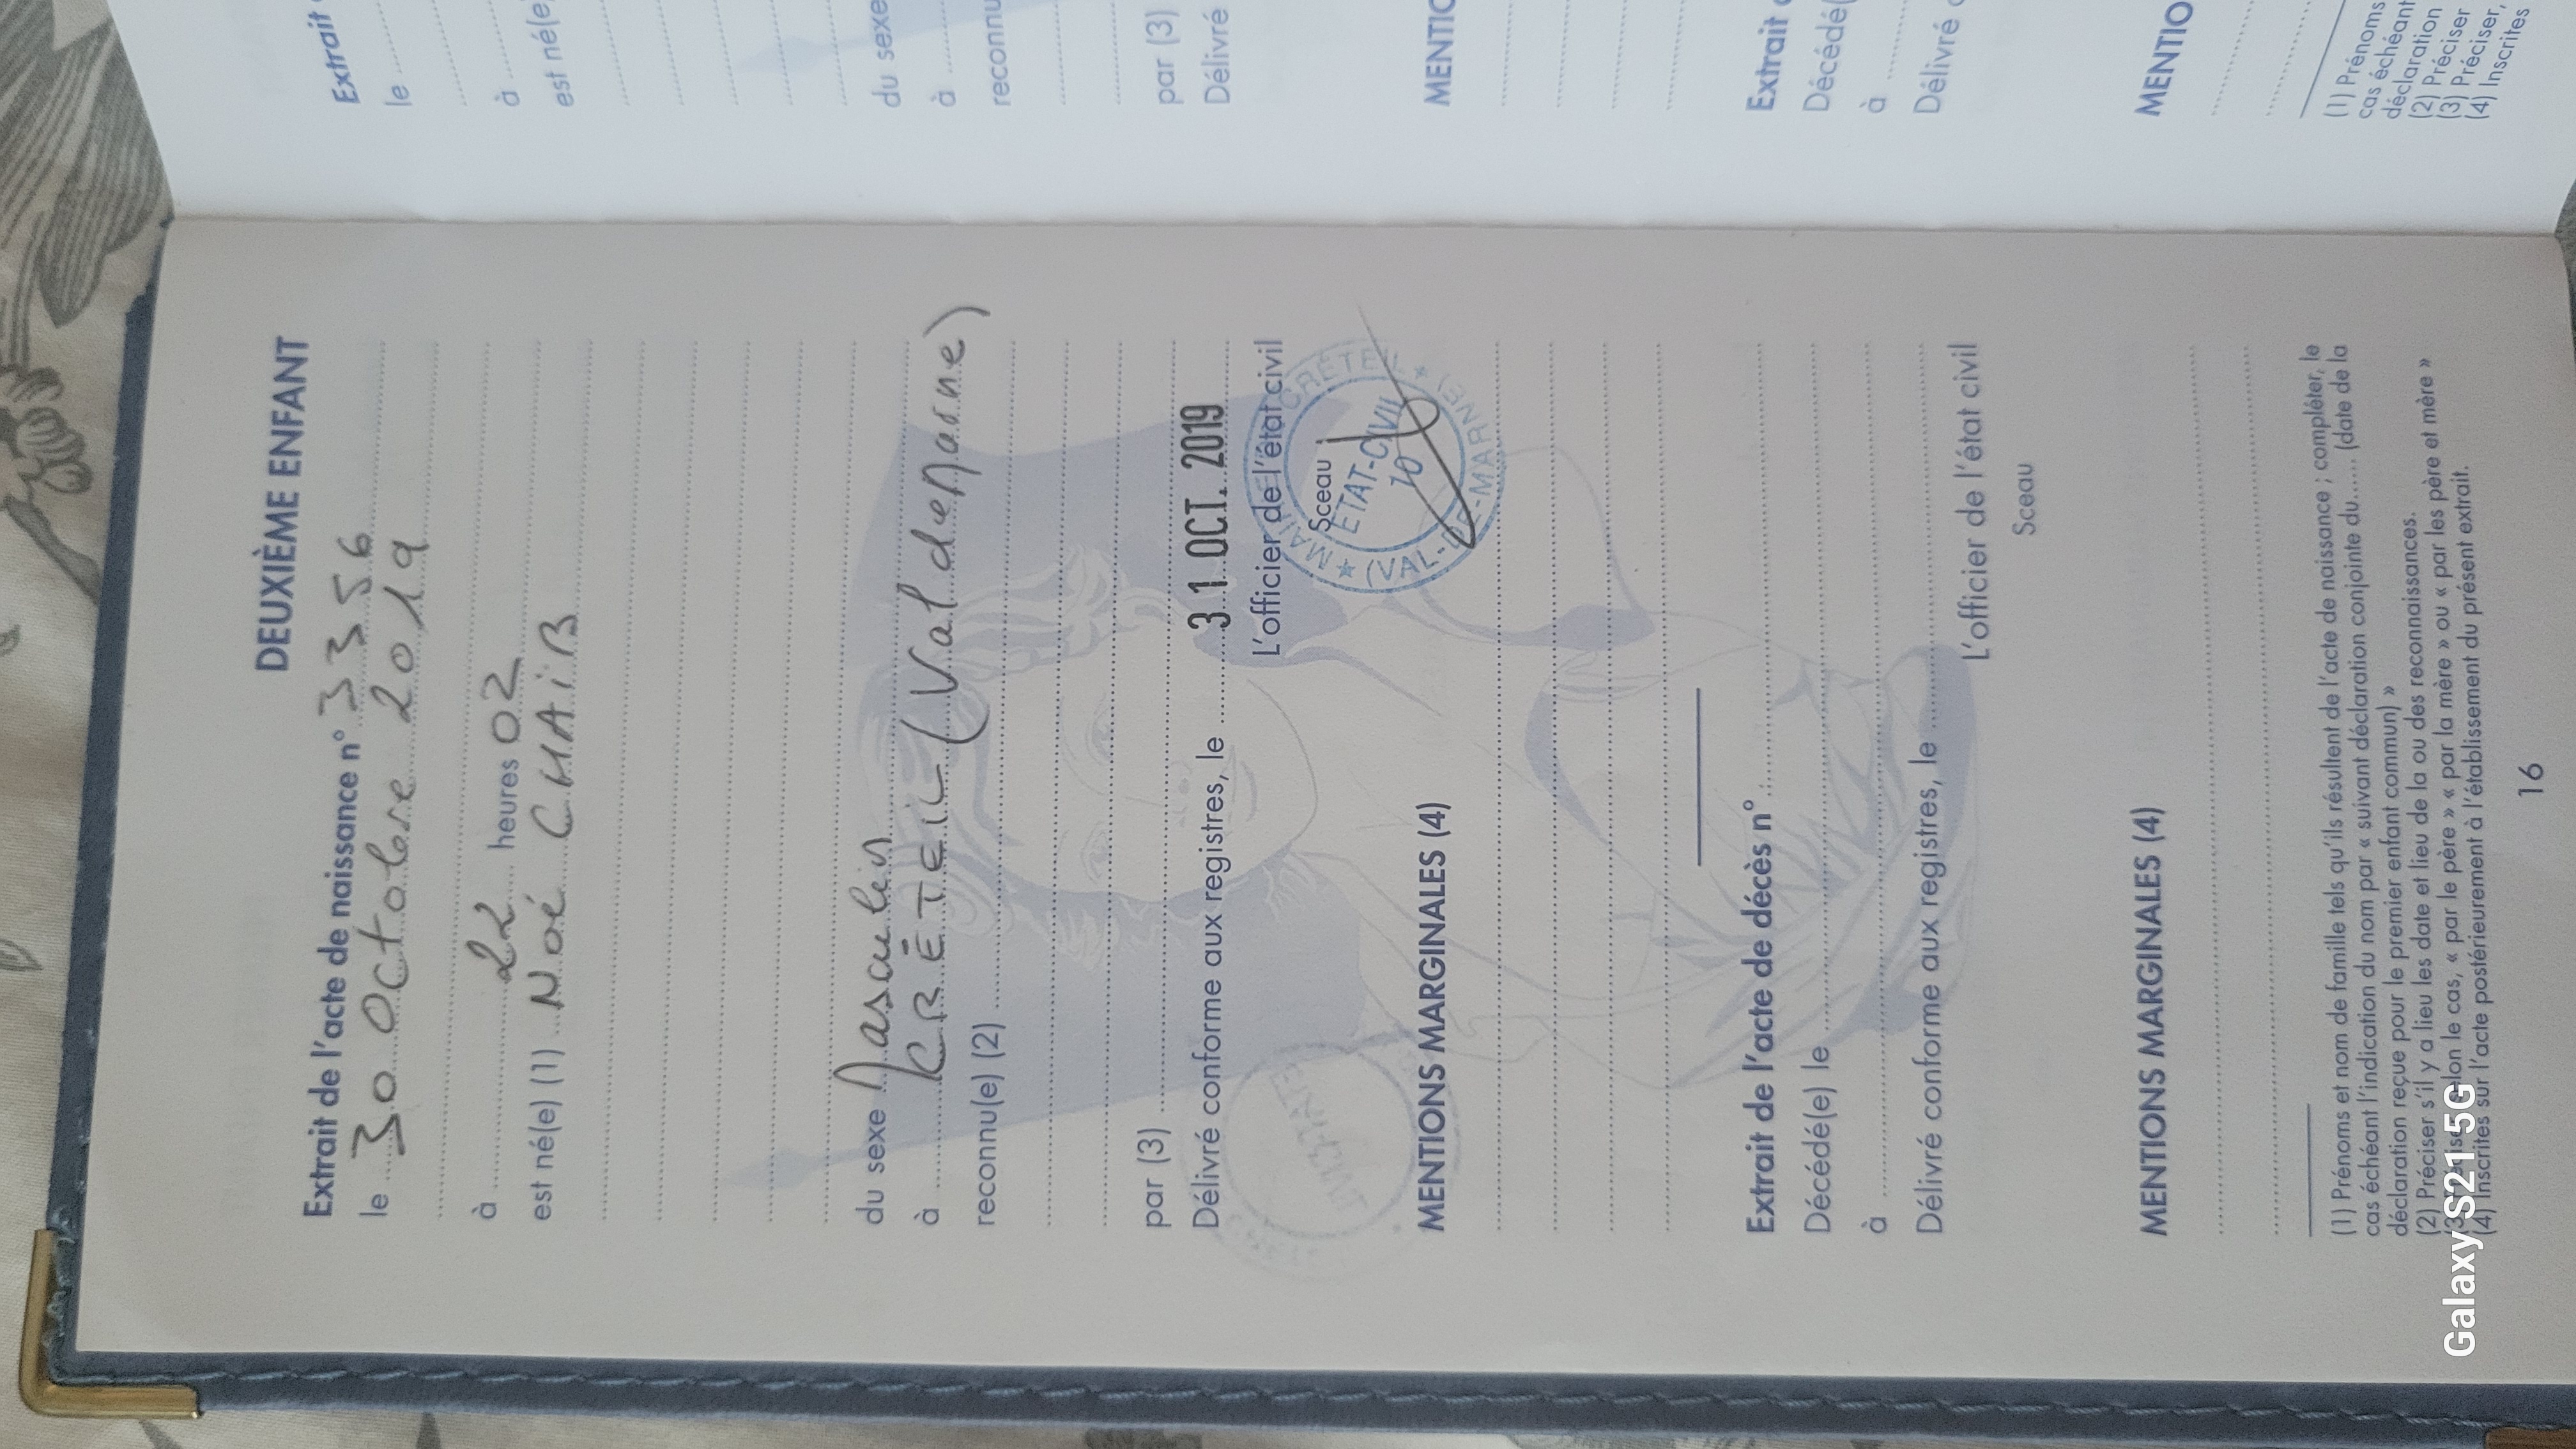 DEUXIÈME ENFANT
Extrait de l'acte de naissance n° 3356
le 30 Octobre 2019
à 22 heures 02
est né(e) (1) Noé CHAiB
du sexe Masculin
à CRÉTEiL (Val de Marne)
reconnu(e) (2)
par (3)
Délivré conforme aux registres, le 31 OCT. 2019
L'officier de l'état civil
Sceau
MAIRIE DE CRÉTEIL
ÉTAT-CIVIL
10
(VAL-DE-MARNE)
MENTIONS MARGINALES (4)
Extrait de l'acte de décès n°
Décédé(e) le
à
Délivré conforme aux registres, le
L'officier de l'état civil
Sceau
MENTIONS MARGINALES (4)
(1) Prénoms et nom de famille tels qu'ils résultent de l'acte de naissance ; compléter, le
cas échéant l'indication du nom par « suivant déclaration conjointe du...... (date de la
déclaration reçue pour le premier enfant commun) »
(2) Préciser s'il y a lieu les date et lieu de la ou des reconnaissances.
(3) Préciser, selon le cas, « par le père » « par la mère » ou « par les père et mère »
(4) Inscrites sur l'acte postérieurement à l'établissement du présent extrait.
16
Extrait
le
à
est né(e)
du sexe
à
reconnu
par (3)
Délivré
MENTIO
Extrait
Décédé(
à
Délivré
MENTIO
(1) Prénoms
cas échéant
déclaration
(2) Préciser
(3) Préciser,
(4) Inscrites
Galaxy S21 5G